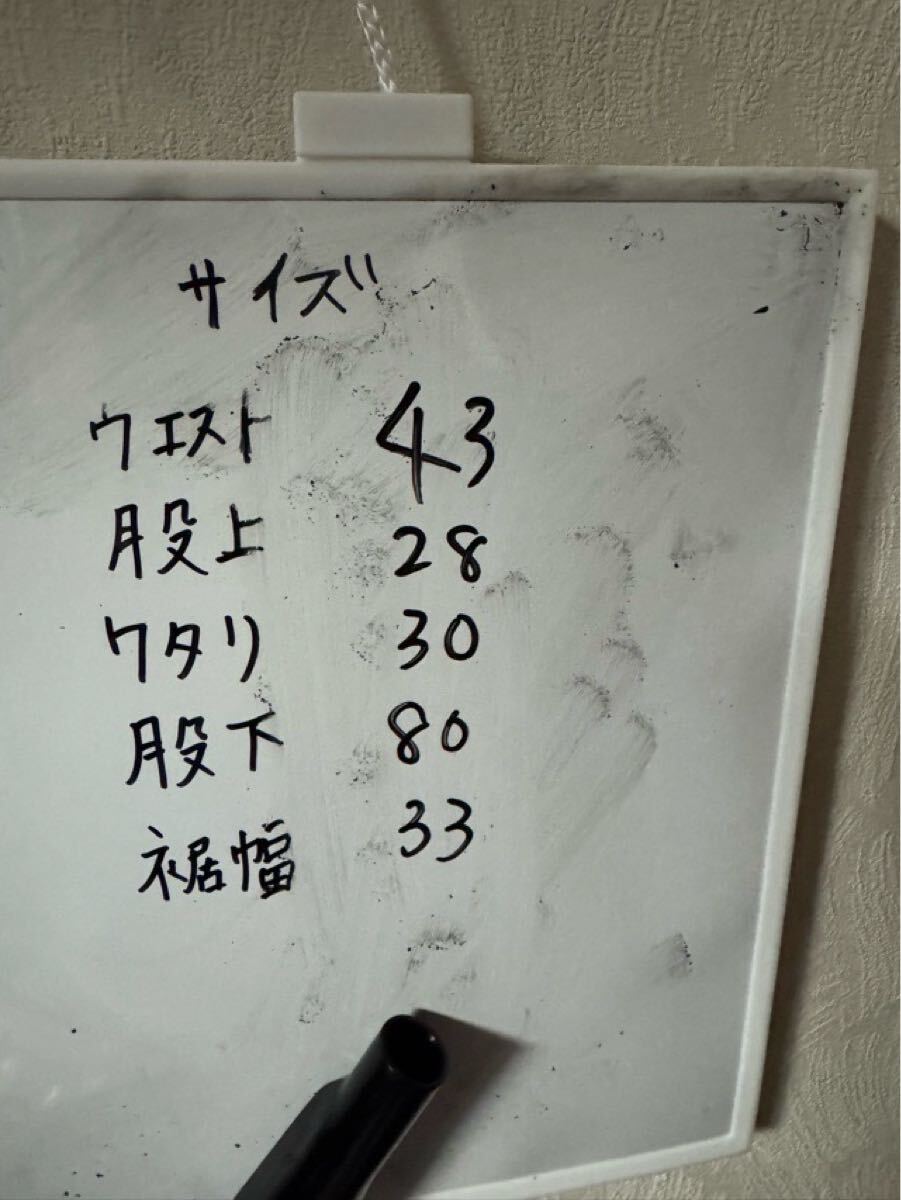 サイズ
ウエスト 43
股上 28
ワタリ 30
股下 80
裾幅 33